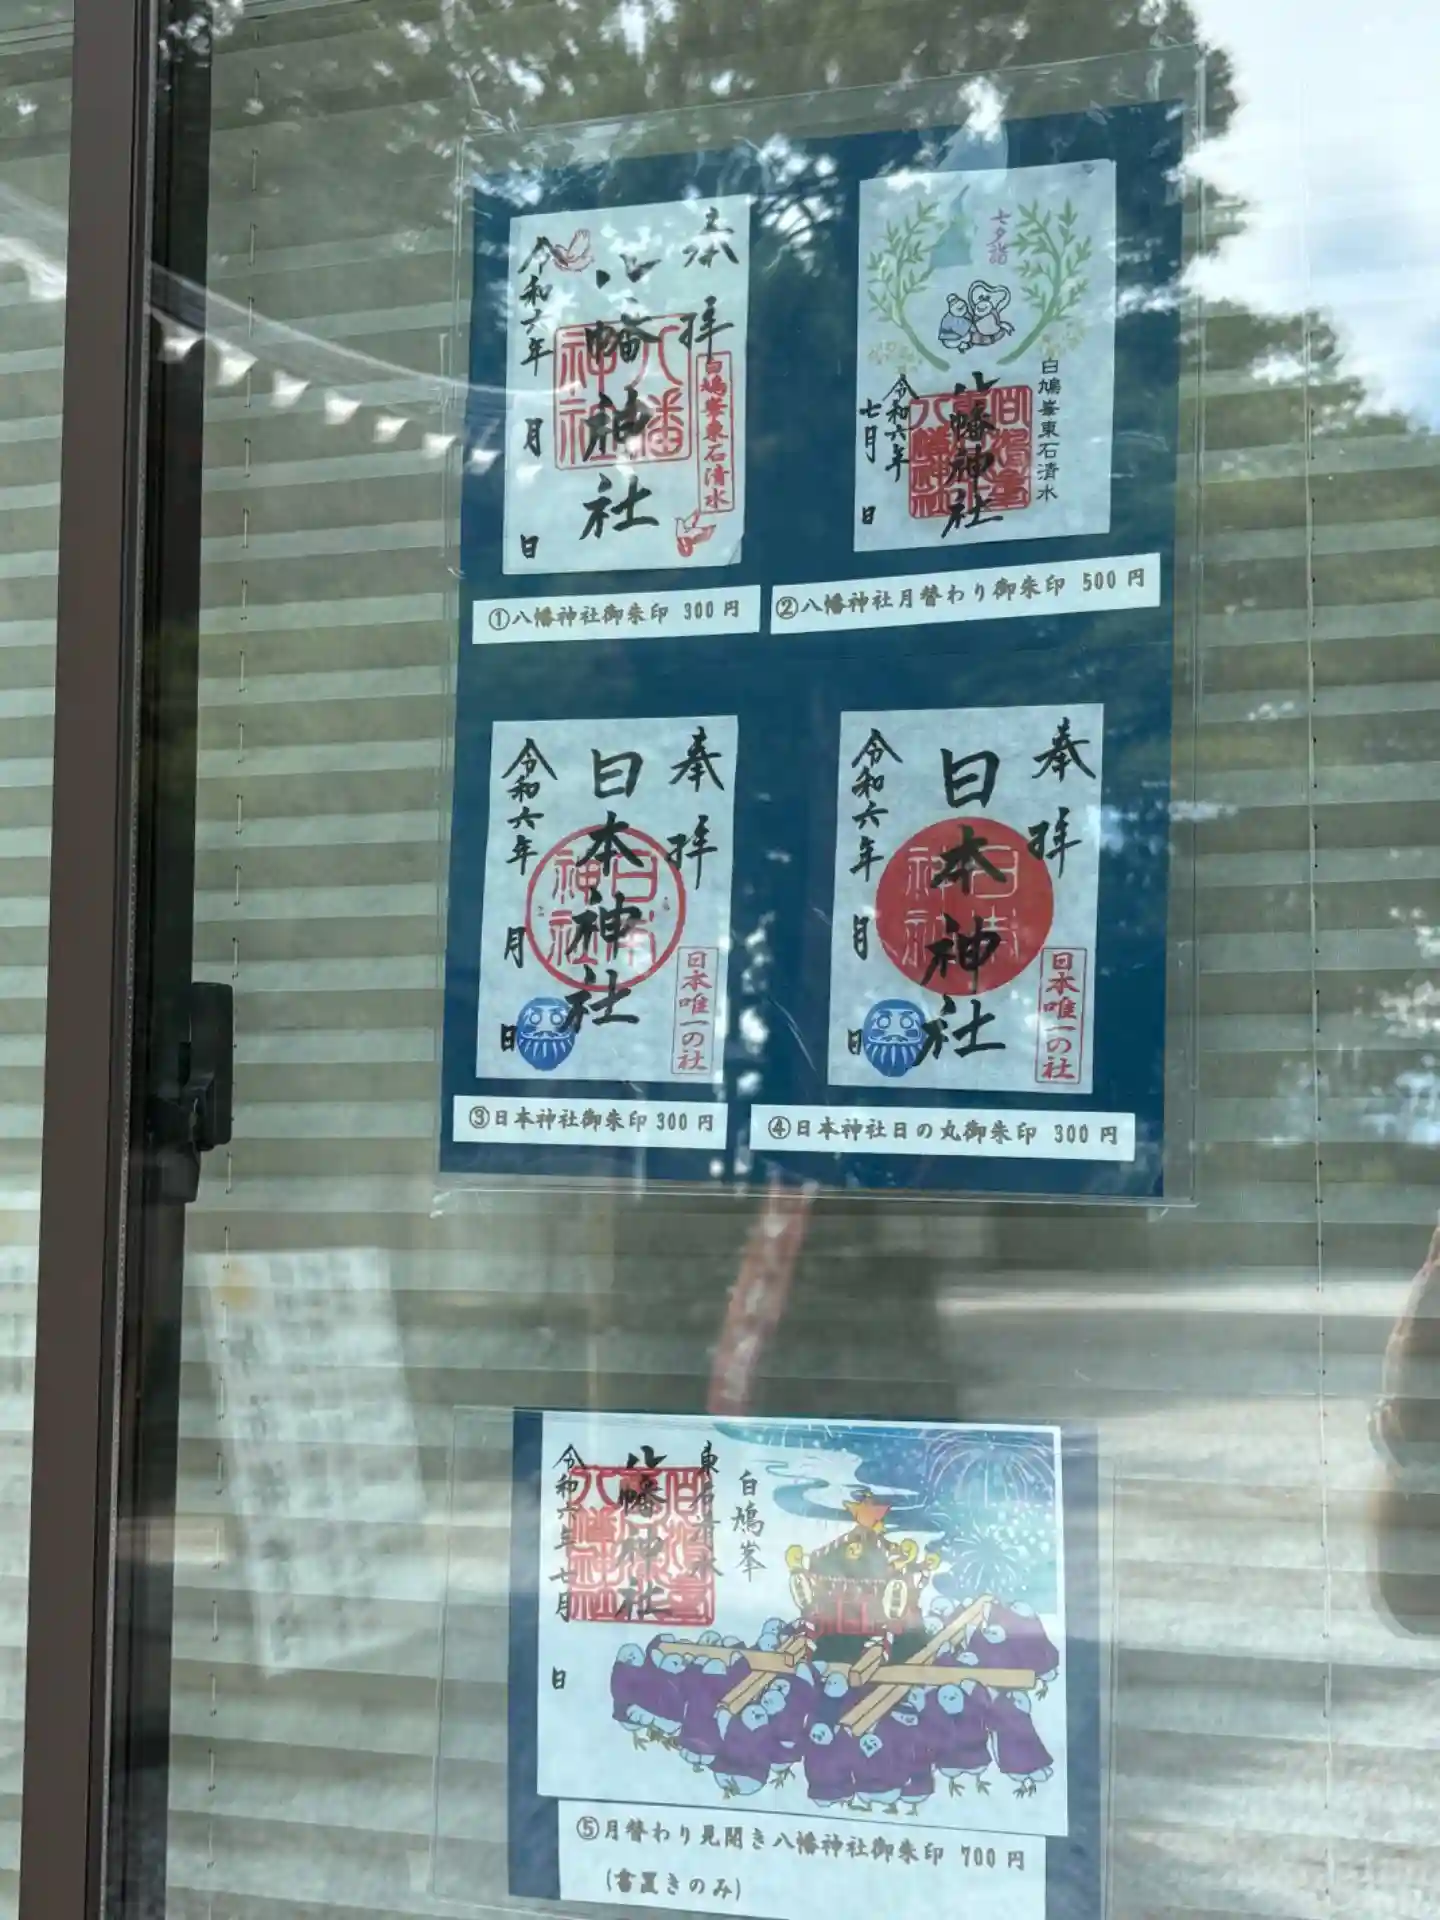 奉拝
八幡神社
令和六年 月 日
白鳩峯東石清水
八幡神社
①八幡神社御朱印 300円
七夕詣
白鳩峯東石清水
八幡神社
令和六年
七月 日
②八幡神社月替わり御朱印 500円
奉拝
日本神社
令和六年 月 日
日本神社
日本唯一の社
③日本神社御朱印300円
奉拝
日本神社
令和六年 月 日
日本神社
日本唯一の社
④日本神社日の丸御朱印 300円
白鳩峯
東石清水
八幡神社
令和六年七月 日
⑤月替わり見開き八幡神社御朱印 700円
(書置きのみ)